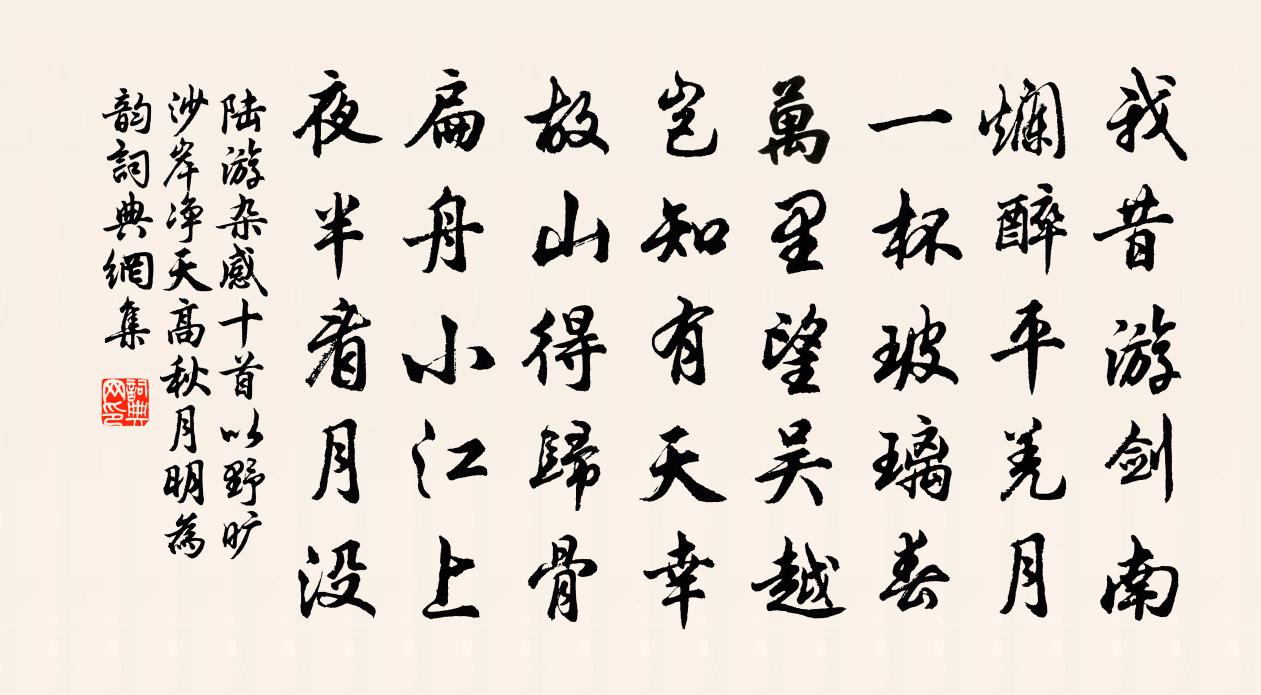 我昔游剑南
爛醉平羌月
一杯玻璃春
萬里望吴越
岂知有天幸
故山得歸骨
扁舟小江上
夜半看月没
陆游杂感十首以野旷
沙岸净天高秋月明為
韵詞典網集
詞典
网印